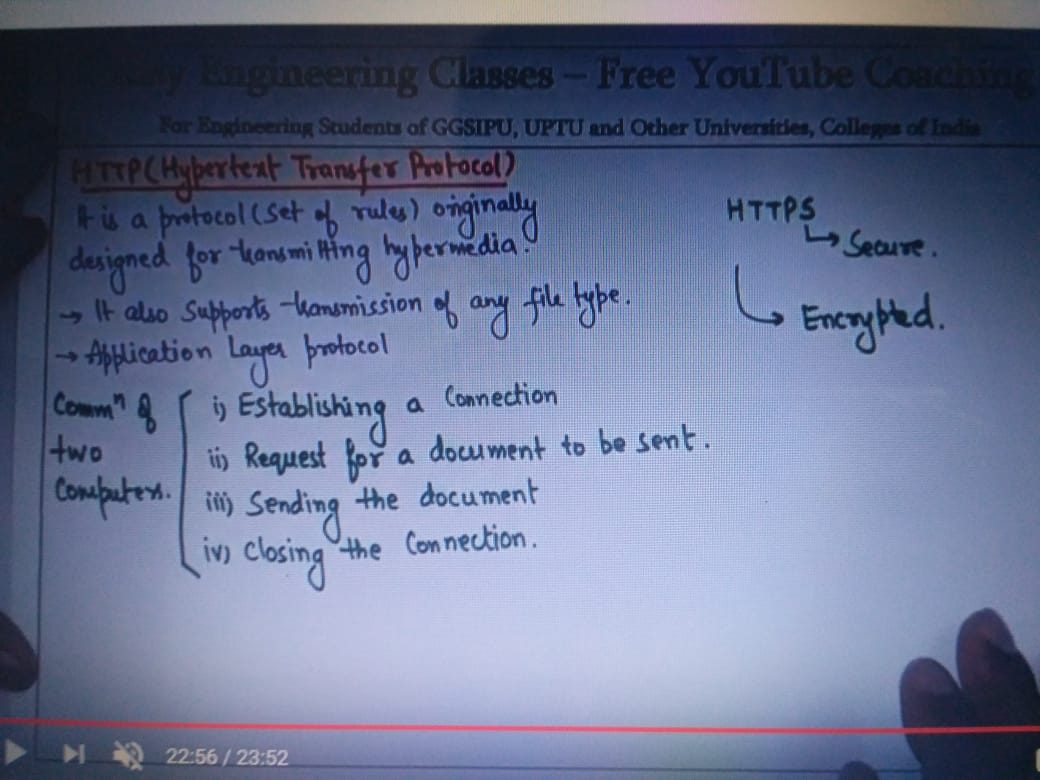 Engineering Classes – Free YouTube Coaching
For Engineering Students of GGSIPU, UPTU and Other Universities, Colleges of India
HTTP (Hypertext Transfer Protocol)
It is a protocol (set of rules) originally
designed for transmitting hypermedia.
→ It also supports transmission of any file type.
→ Application Layer protocol
Commⁿ of
two
Computers.
i) Establishing a Connection
ii) Request for a document to be sent.
iii) Sending the document
iv) Closing the Connection.
HTTPS
↳ Secure.
↳ Encrypted.
22:56 / 23:52